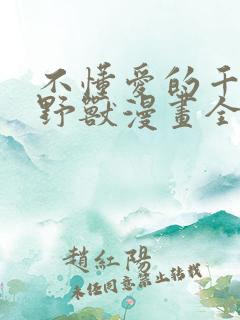 不懂愛的干
野獸漫畫全
趙紅陽
未经同意禁止转载